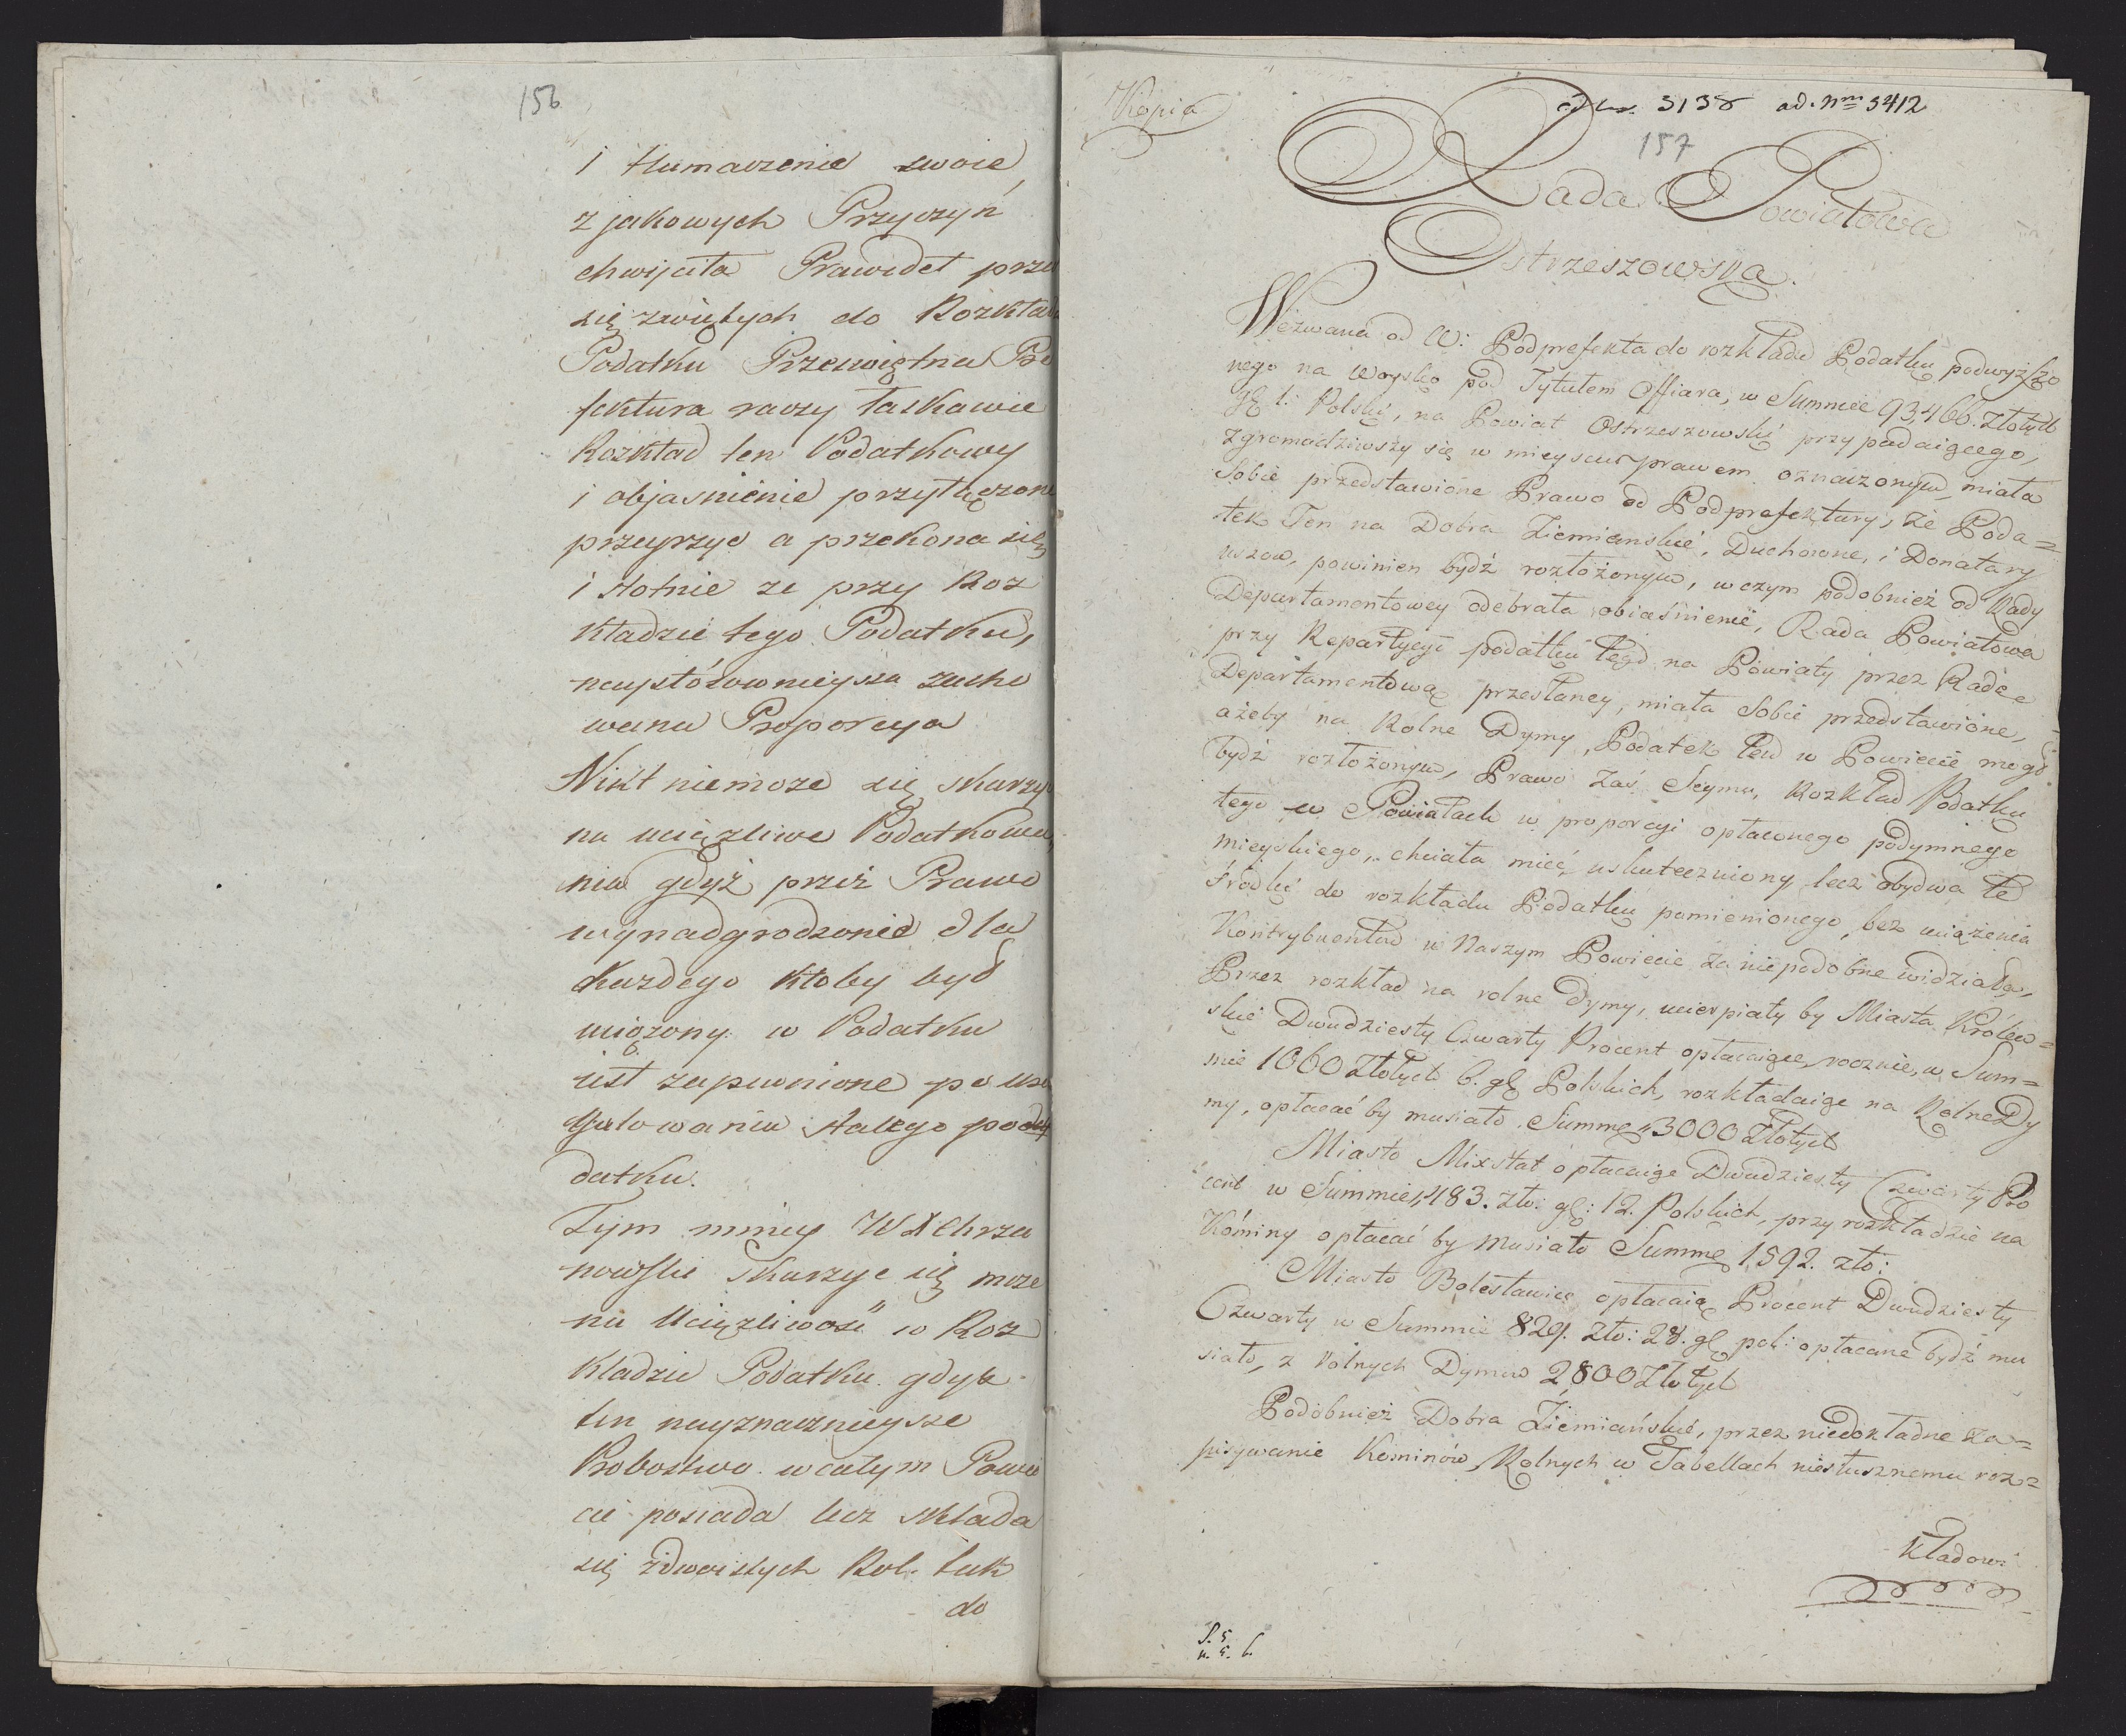 156
i tłumaczenie swoie
z jakowych Przyczyń
chwyciła Prawideł prze
się zwiętych do Rozkładu
Podatku Przeswiętna Pre
fektura raczy łaskawie
Rozkład ten Podatkowy
i objasnienie przyłączone
przeyrzyc a przekona się
istotnie ze przy Roz
kładzie tego Podatku,
naystósownieysza zacho
wana Proporcya
Nikt niemoze się skarzyc
na uciązliwe Podatkowa
nia gdyż przeż Prawo
wynadgrodzenie dla
Kazdego ktoby był
uciązony w Podatku
iest zapewnione po ure
gulowaniu stałego po
datku.
Tym mniey WX Chrza
nowski skarzyc się moze
na Uciązliwość w Roz
kładzie Podatku gdyz
ten nayznacznieysze
Probostwo w całym Powie
cie posiada lecz składa
się zdwoistych Rol. tak
do
Kopia
ad Nr. 3138 ad. Nrm 3412
157
Rada Powiatowa
Ostrzeszowska.
Wezwana od W: Podprefekta do rozkładu Podatku podwyższo
nego na woysko pod Tytułem Offiara, w Summie 93,466. złotych
gl 1. Polski, na Powiat Ostrzeszowski przypadaiącego,
Zgromadziwszy się w mieyscu prawem oznaczonym, miała
Sobie przedstawione Prawo od Podprefektury, że Poda=
tek Ten na Dobra Ziemianskie, Duchowne, i Donatary
uszow, powinien bydź rozłożonym, w czym podobnież od Rady
Departamentowey odebrała obiaśnienie, Rada Powiatowa
przy Repartycyi podatku tego na Powiaty przez Radę
Departamentową przesłaney, miała Sobie przedstawione,
ażeby na Rolne Dymy, Podatek ten w Powiecie mogł
bydź rozłożonym, Prawo zaś Seymu, Rozkład Podatku
tego w Powiatach w proporcyi opłaconego podymnego
mieyskiego, chciała mieć uskuteczniony, lecz obydwa te
śrzodki do rozkładu Podatku pomienionego, bez uciążenia
Kontrybuentow w Naszym Powiecie za niepodobne widziała,
Przez rozkład na rolne Dymy, ucierpiały by Miasta Krolew=
skie Dwudziesty Czwarty Procent opłacaiące, rocznie, w Sum=
mie 1060 Złotych 6. gl Polskich, rozkładaiąc na Rolne Dy
my, opłacać by musiało Summę 3000 Złotych
Miasto Mixstat opłacaiąc Dwudziesty Czwarty Pro
cent w Summie 483. zło: gl: 12. Polskich, przy rozkładzie na
Kominy opłacać by Musiało Summę 1,592. zło:
Miasto Bolesławice opłacaią Procent Dwudziesty
Czwarty w Summie 829. zło: 28. gl pol: opłacane bydź mu
siało, z Rolnych Dymow 2,800 Złotych
Podobnież Dobra Ziemiańskie, przez niedokładne za=
pisywanie Kominow Rolnych w Tabellach niesłusznemu roz=
kładowi